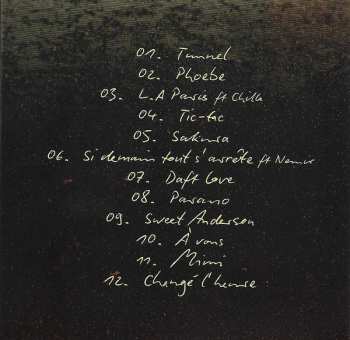 01. Tunnel
02. Phoebe
03. L.A Paris ft Chilla
04. Tic-tac
05. Sakura
06. Si demain tout s'arrête ft Nemir
07. Daft Love
08. Parano
09. Sweet Anderson
10. À vous
11. Mimi
12. Changé l'heure